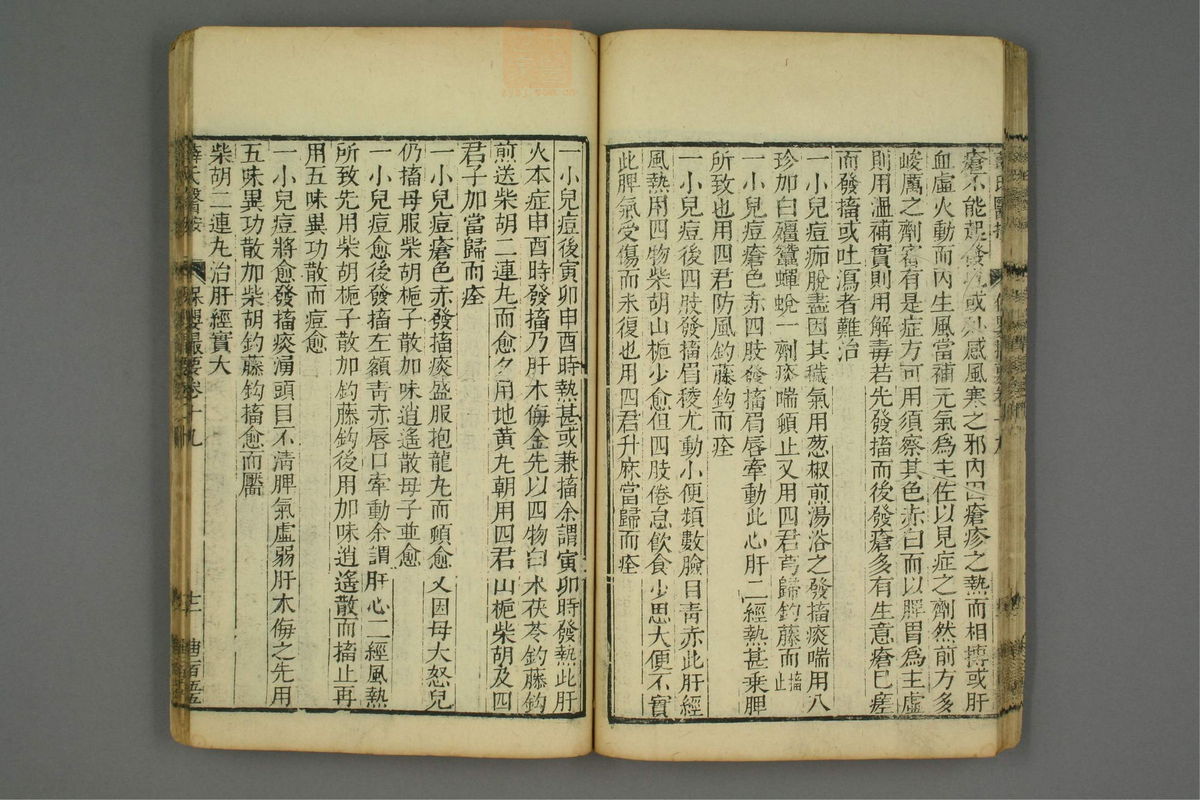 薛氏醫按
瘡不能起發或外感風寒之邪內因瘡疹之熱而相摶或肝
血虛火動而內生風當補元氣為主佐以見症之劑然前方多
峻厲之劑審有是症方可用須察其色赤白而以脾胃為主虛
則用溫補實則用解毒若先發搐而後發瘡多有生意瘡已瘥
而發搐或吐瀉者難治
一小兒痘痂脫盡因其穢氣用葱椒煎湯浴之發搐痰喘用八
珍加白殭蠶蟬蛻一劑痰喘頓止又用四君芎歸鈎藤而搐止
一小兒痘瘡色赤四肢發搐眉唇牽動此心肝二經熱甚乗脾
所致也用四君防風鈎藤鈎而痊
一小兒痘後四肢發搐眉稜尤動小便頻數臉目青赤此肝經
風熱用四物柴胡山梔少愈但四肢倦怠飲食少思大便不實
此脾氣受傷而未復也用四君升麻當歸而痊
一小兒痘後寅卯申酉時熱甚或兼搐余謂寅卯時發熱此肝
火本症申酉時發搐乃肝木侮金先以四物白朮茯苓鈎藤鈎
煎送柴胡二連丸而愈夕用地黃丸朝用四君山梔柴胡及四
君子加當歸而痊
一小兒痘瘡色赤發搐痰盛服抱龍丸而頓愈又因母大怒兒
仍搐母服柴胡梔子散加味逍遙散母子並愈
一小兒痘愈後發搐左額青赤唇口牽動余謂肝心二經風熱
所致先用柴胡梔子散加鈎藤鈎後用加味逍遙散而搐止再
用五味異功散而痘愈
一小兒痘將愈發搐痰湧頭目不清脾氣虛弱肝木侮之先用
五味異功散加柴胡鈎藤鈎搐愈而靨
柴胡二連丸治肝經實火
薛氏醫按
保嬰撮要卷十九